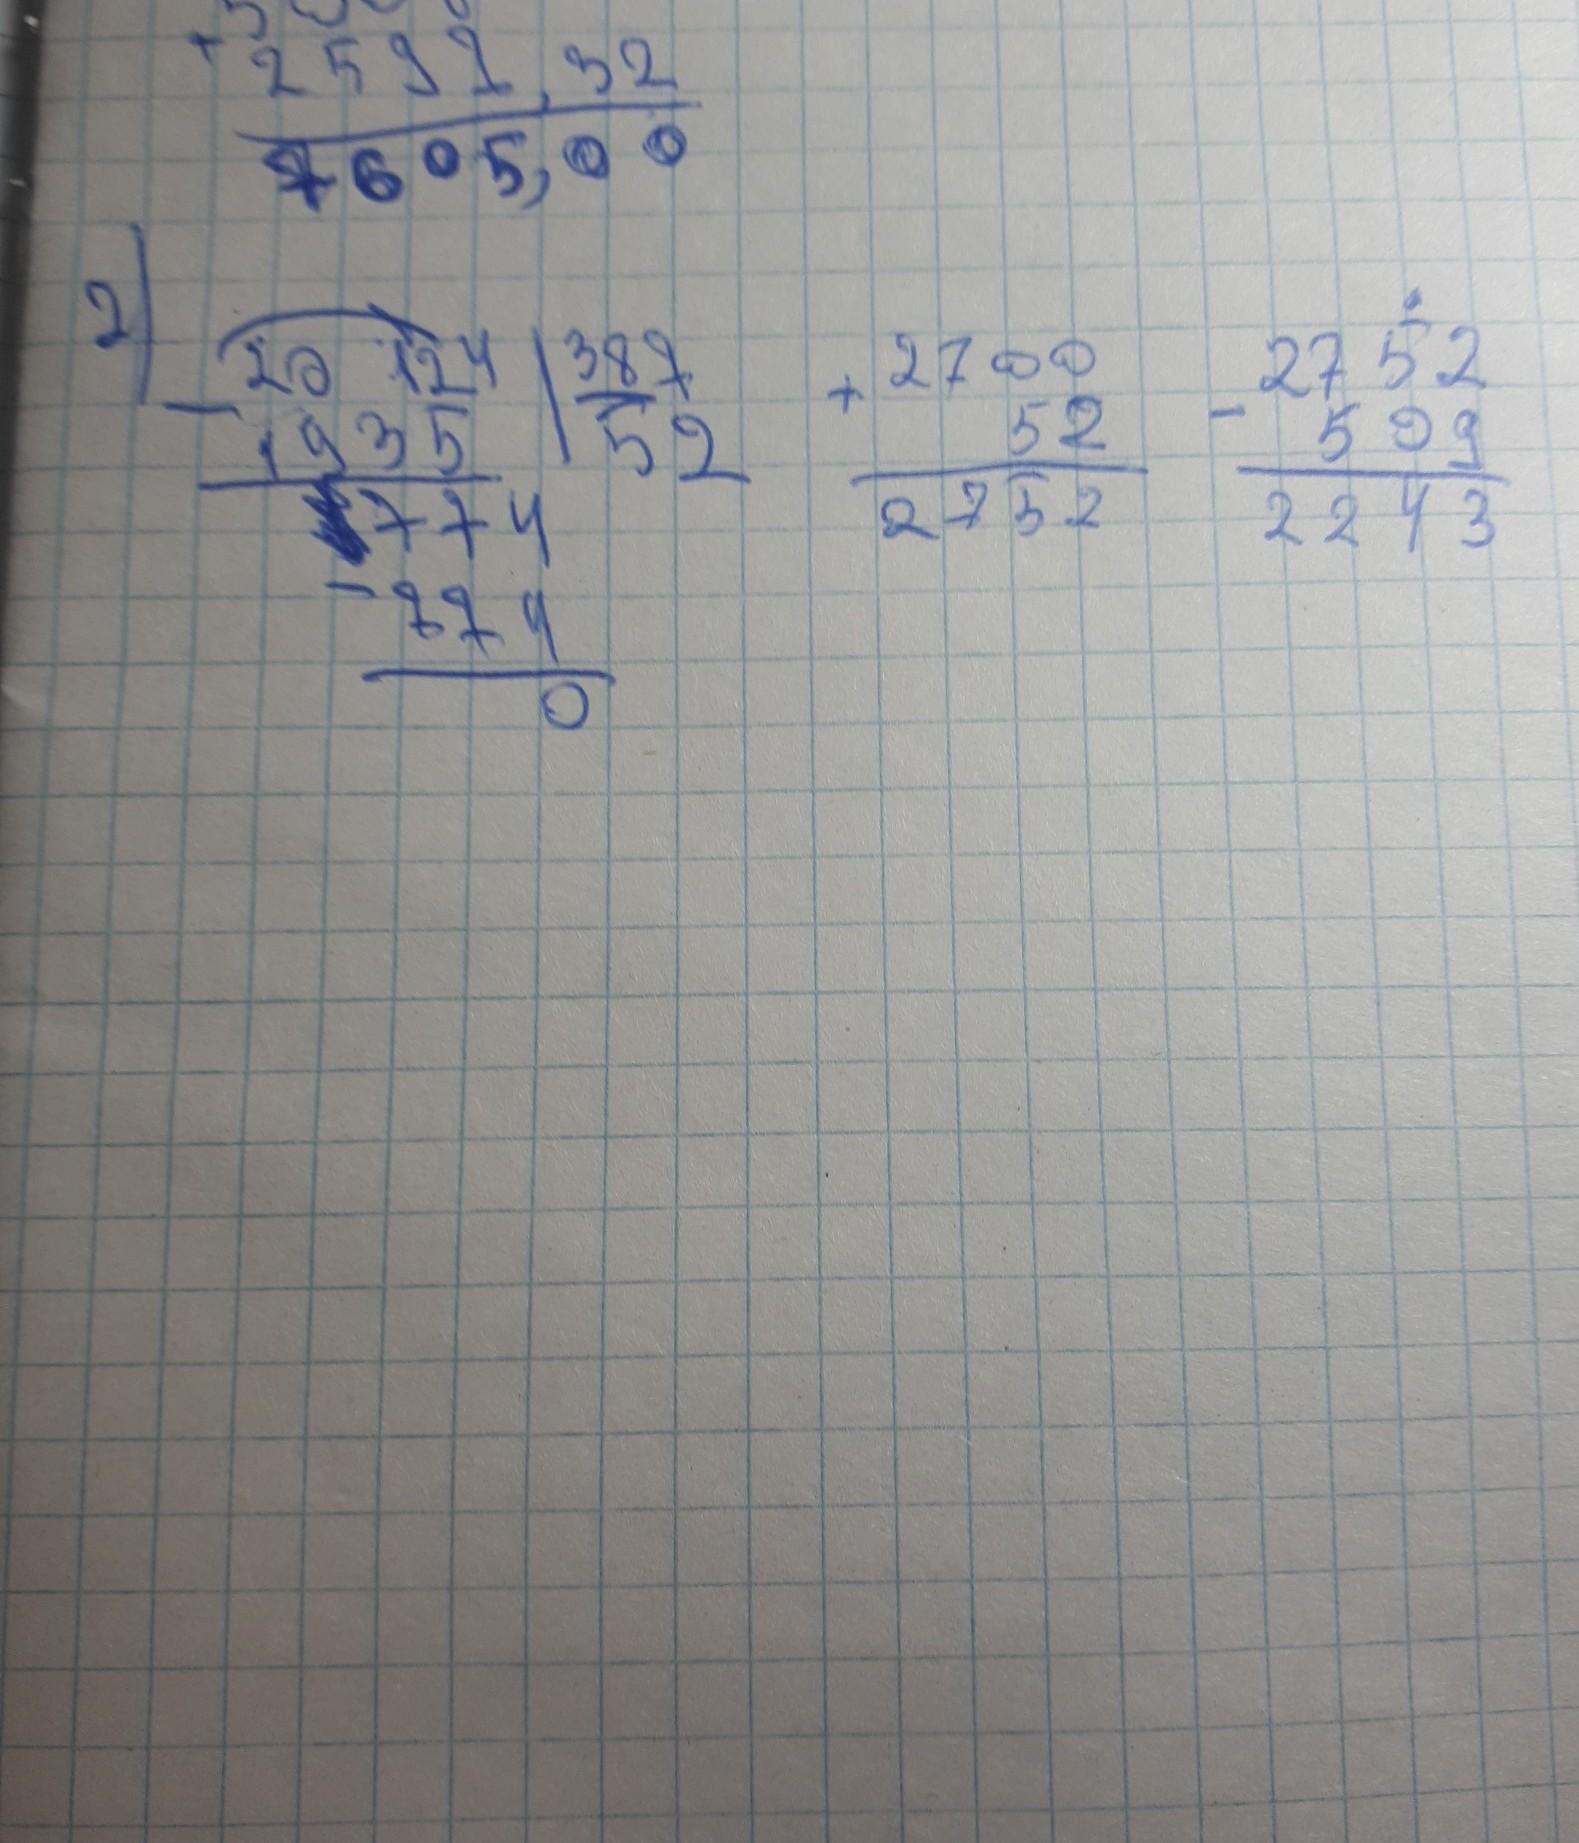 + 2591,32
7605,00
2)
20 124 | 387
- 1935 | 52
774
- 774
0
+ 2700
52
2752
- 2752
509
2243